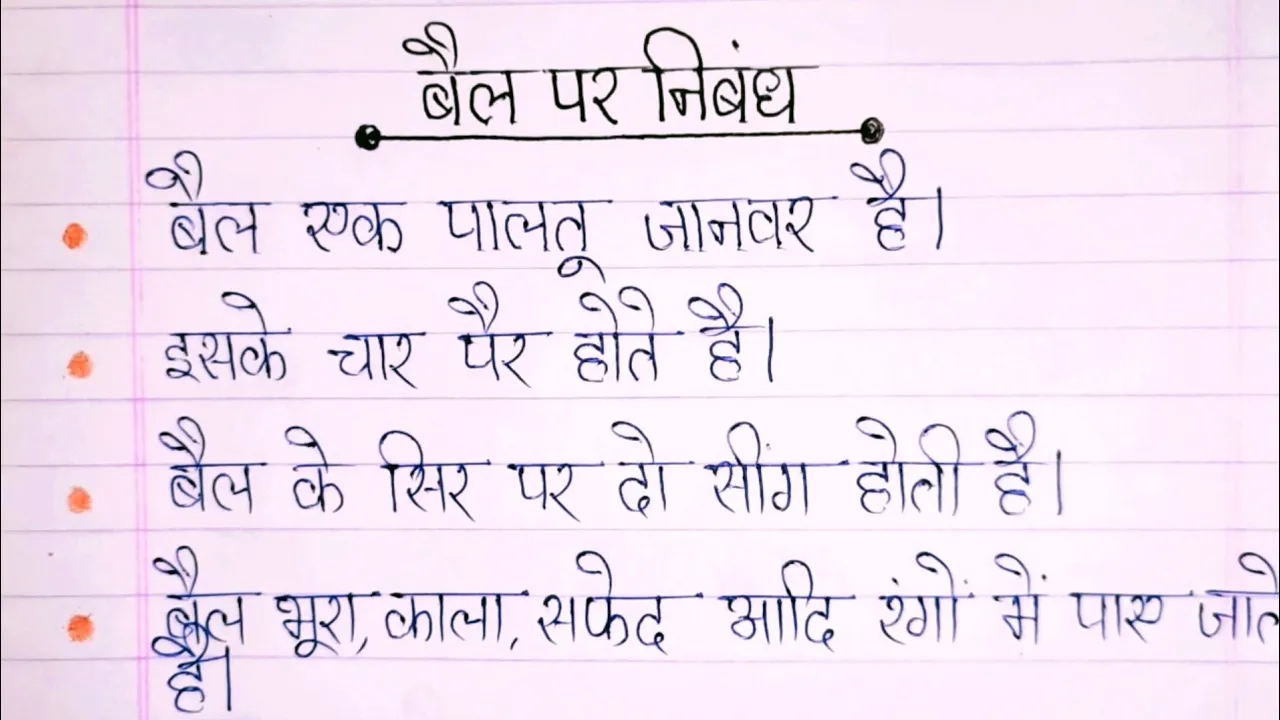 बैल पर निबंध
बैल एक पालतू जानवर है।
इसके चार पैर होते है।
बैल के सिर पर दो सींग होती है।
बैल भूरा, काला, सफेद आदि रंगों में पाए जाते
है।